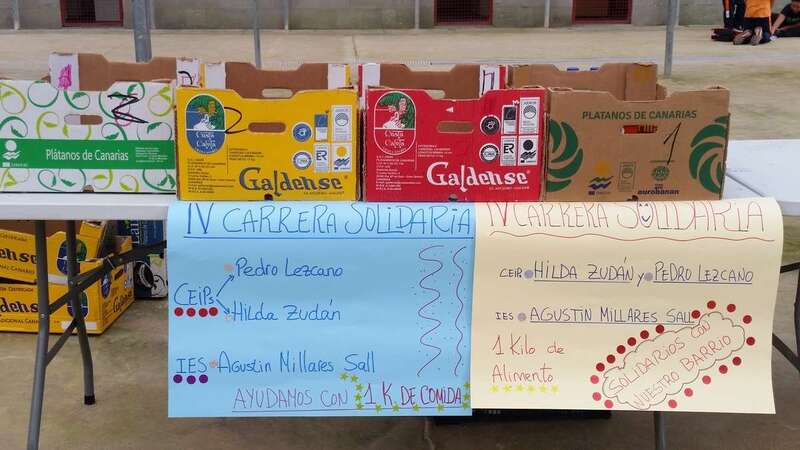 Plátanos de Canarias
Z
Costa
Caleta
2
Galdense
Costa
Caleta
Galdense
PLÁTANOS DE CANARIAS
1
eurobanan
IV CARRERA SOLIDARIA
CEIPs
Pedro Lezcano
Hilda Zudán
IES Agustin Millares Sall
AYUDAMOS CON 1 K. DE COMIDA
IV CARRERA SOLIDARIA
CEIP HILDA ZUDÁN y PEDRO LEZCANO
IES AGUSTÍN MILLARES SALL
1 Kilo de
Alimento
SOLIDARIOS CON
NUESTRO BARRIO